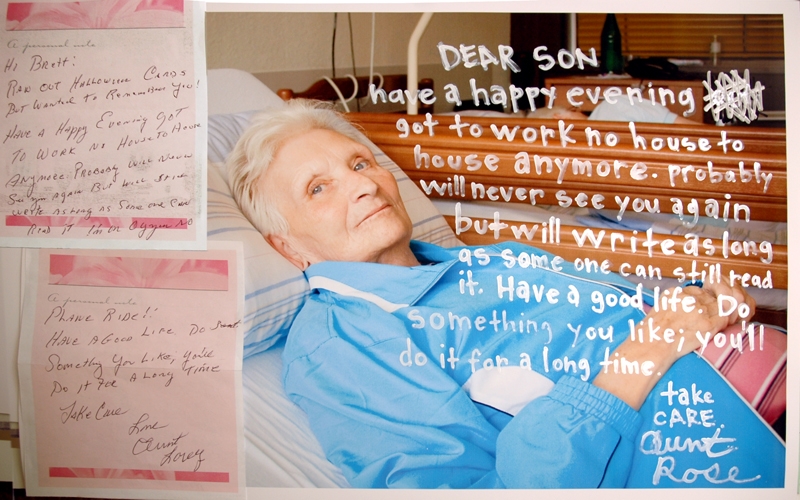 A personal note
Hi Brett!
Ran out Halloween Cards
But Wanted To Remember You!
Have a Happy Evening Got
To Work No House to House
Anymore. Probably Will Never
See you again But will still
write as long as some one can
Read it I'm on oxygen NO
A personal note
Plane Ride!!
Have A Good Life Do
Something You Like, you'll
Do it For A Long Time
Take Care
Love
Aunt
DEAR SON
have a happy evening
got to work no house to
house anymore. probably
will never see you again
but will write as long
as some one can still read
it. Have a good life. Do
something you like; you'll
do it for a long time.
take
CARE.
Aunt
Rose